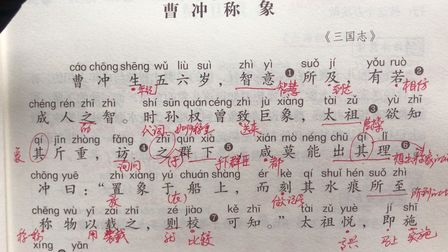 曹 冲 称 象
《三国志》
cáo chōng shēng wǔ liù suì zhì yì suǒ jí yǒu ruò
曹冲生五六岁,智意❶所及,有若❷
年纪 智慧 到达 相仿
chéng rén zhī zhì shí sūn quán céng zhì jù xiàng tài zǔ yù zhī
成人之智。时孙权曾致巨象,太祖❸欲知
的 送来 曹操
qí jīn zhòng fǎng zhī qún xià xián mò néng chū qí lǐ
其斤重,访❹之群下❺,咸莫能出其理❻。
询问 手下群臣 都
chōng yuē zhì xiàng yú chuán shàng ér kè qí shuǐ hén suǒ zhì
冲曰:“置象于船上,而刻其水痕所至
放 (在) 做记号
chēng wù yǐ zài zhī zé jiào kě zhī tài zǔ yuè jí shī
称物以载之,则校可知。”太祖悦,即施
用 装载 比较 高兴 马上 实施
xíng yān